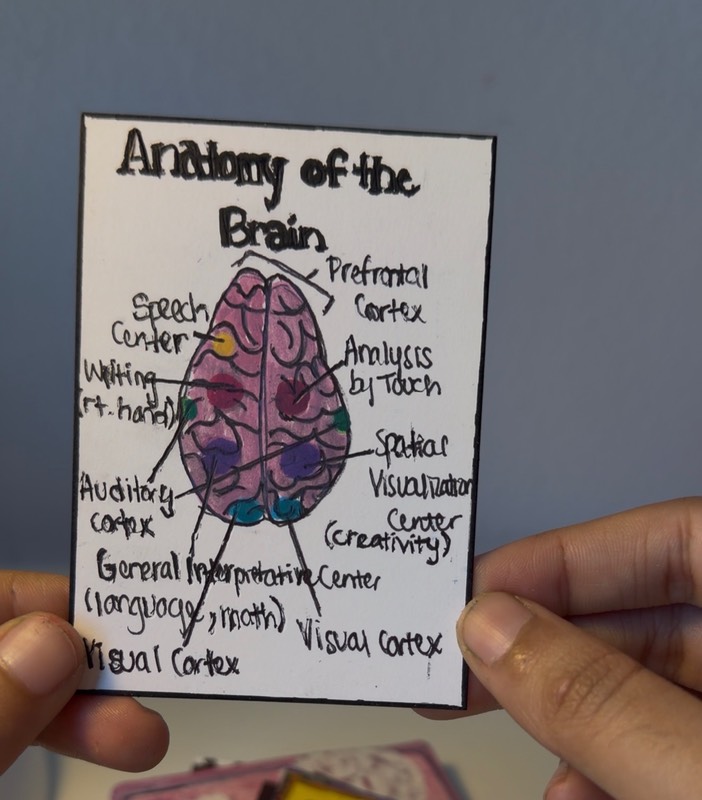 Anatomy of the
Brain
Prefrontal
Cortex
Speech
Center
Analysis
by Touch
Writing
(rt. hand)
Spatial
Visualization
Center
(creativity)
Auditory
cortex
General Interpretative Center
(language, math)
Visual Cortex
Visual Cortex